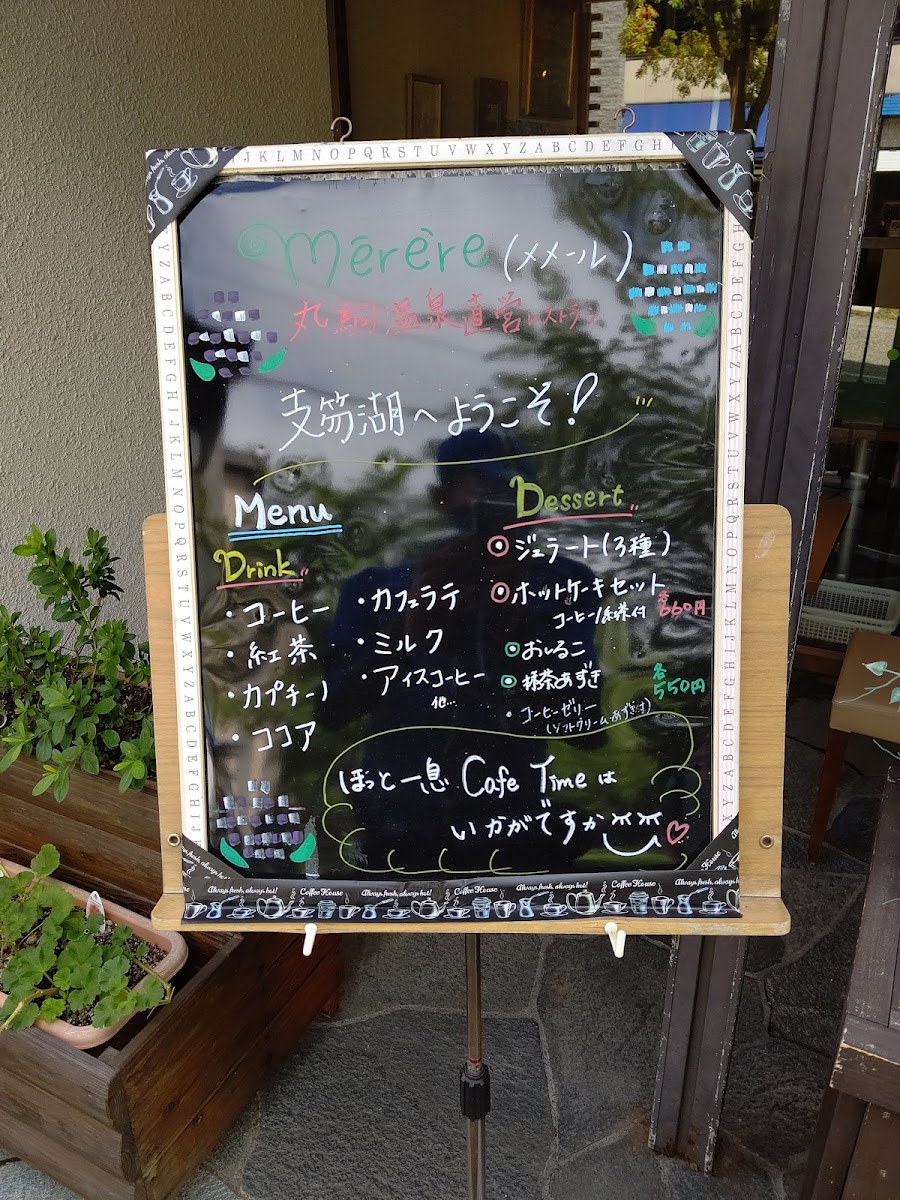 JKLMNOPQRSTUVWXYZABCDEFGHI
Mērère (メメール)
丸駒温泉直営レストラン
支笏湖へようこそ!
Menu
Drink
・コーヒー
・紅茶
・カプチーノ
・ココア
・カフェラテ
・ミルク
・アイスコーヒー
他...
Dessert
ジェラート(3種)
ホットケーキセット
コーヒー/紅茶付
各660円
おしるこ
抹茶あずき
各550円
・コーヒーゼリー
(ソフトクリーム・あずき付)
ほっと一息 Cafe Time は
いかがですか
Always fresh, always hot! Coffee House Always fresh, always hot! Coffee House Always fresh, always hot! Coffee House Always fresh, always hot!